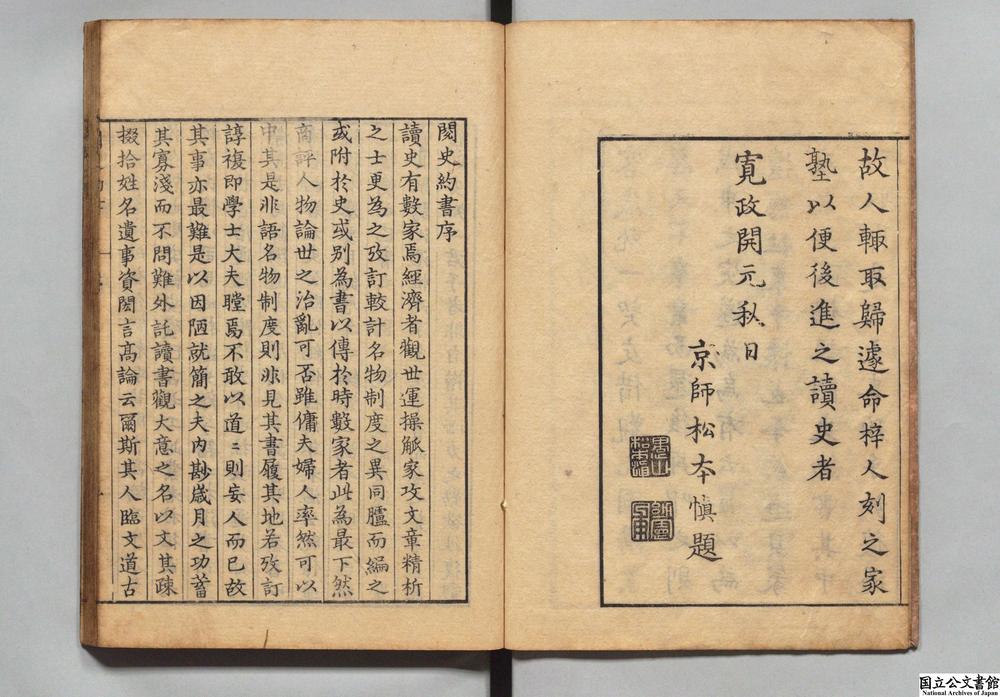 故人輙取歸遽命梓人刻之家
塾以便後進之讀史者
寛政開元秋日
京師松本愼題
閱史約書序
讀史有數家焉經濟者觀世運操觚家攻文章精析
之士更為之攷訂較計名物制度之異同臚而編之
或附於史或别為書以傳於時數家者此為最下然
商評人物論世之治亂可否雖傭夫婦人率然可以
中其是非語名物制度則非見其書履其地若攷訂
諄複即學士大夫瞠焉不敢以道〻則妄人而已故
其事亦最難是以因陋就簡之夫内尠歲月之功蓄
其寡淺而不問難外託讀書觀大意之名以文其疎
掇拾姓名遺事資閎言高論云爾斯其人臨文道古
国立公文書館
National Archives of Japan